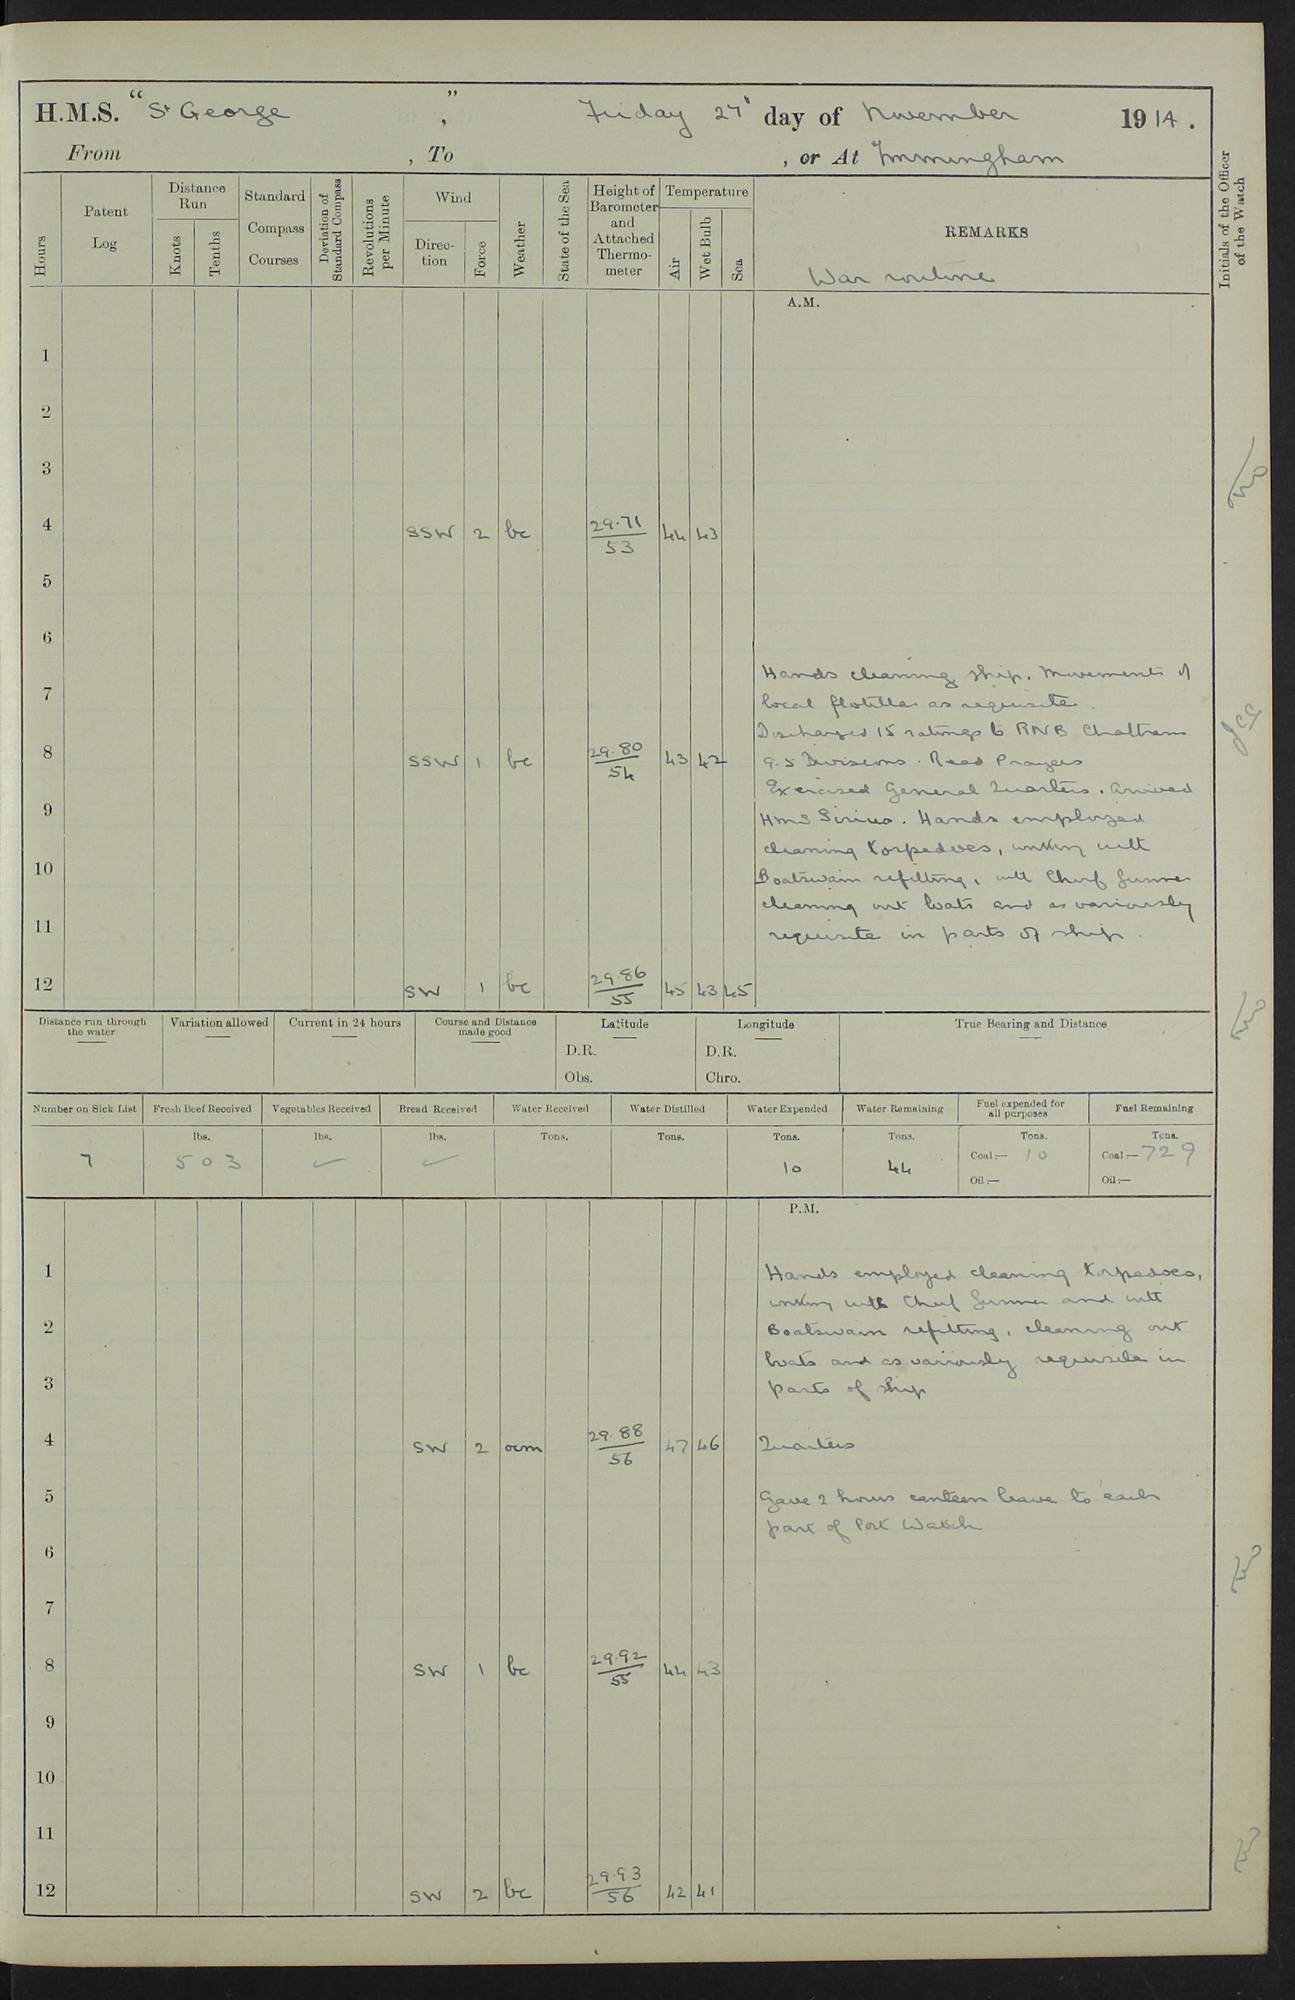 H.M.S. "St George", Friday 27th day of November 1914.
From , To , or At Immingham
Hours
Patent Log
Distance Run
Knots
Tenths
Standard Compass Courses
Deviation of Standard Compass
Revolutions per Minute
Wind
Direction
Force
Weather
State of the Sea
Height of Barometer and Attached Thermometer
Temperature
Air
Wet Bulb
Sea
REMARKS
War routine
Initials of the Officer of the Watch
A.M.
1
2
3
4 SSW 2 bc 29.71/53 44 43
5
6
Hands cleaning ship. Movements of
7
local flotilla as requisite.
Discharged 15 ratings to RNB Chatham
8 SSW 1 bc 29.80/54 43 42
9.5 Divisions. Read Prayers
Exercised General Quarters. Arrived
9
HMS Sirius. Hands employed
cleaning torpedoes, working with
10
Boatswain refitting, with Chief Gunner
cleaning out boats and as variously
11
requisite in parts of ship.
12 SW 1 bc 29.86/55 45 43 45
Distance run through the water
Variation allowed
Current in 24 hours
Course and Distance made good
Latitude
D.R.
Obs.
Longitude
D.R.
Chro.
True Bearing and Distance
Number on Sick List
7
Fresh Beef Received
lbs.
503
Vegetables Received
lbs.
✓
Bread Received
lbs.
✓
Water Received
Tons.
Water Distilled
Tons.
Water Expended
Tons.
10
Water Remaining
Tons.
44
Fuel expended for all purposes
Tons.
Coal:— 10
Oil:—
Fuel Remaining
Tons.
Coal:— 729
Oil:—
P.M.
1 Hands employed cleaning torpedoes,
working with Chief Gunner and with
2 Boatswain refitting, cleaning out
boats and as variously requisite in
3 parts of ship
4 SW 2 ocm 29.88/56 47 46 Quarters
5 Gave 2 hours canteen leave to each
part of Port Watch
6
7
8 SW 1 bc 29.92/55 44 43
9
10
11
12 SW 2 bc 29.93/56 42 41